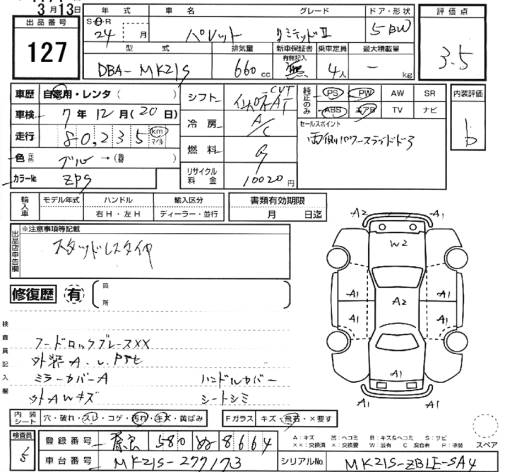 3月13日
出品番号 127
年式 車名 グレード ドア・形状 評価点
S・H・R 24年 月 パレット リミテッドⅡ 5 BW 3.5
型式 排気量 新車保証書 乗車定員 最大積載量
有無記入
DBA-MK21S 660cc 無 4人 - kg
車歴 自家用・レンタ( ) シフト CVT AT
車検 7年12月(20日) 冷房 A/C
走行 80,235 km マイル 燃料 G
色 元 ブルー →(替 )
カラーNo. ZPS リサイクル料金 10020円
純正のみ PS PW AW SR
ABS エアB TV ナビ
セールスポイント
両側パワースライドドア
内装評価 D
輸入車 モデル年式 ハンドル 輸入区分 書類有効期限
右H・左H ディーラー・並行 月 日迄
出品店申告欄 ※注意事項等記載
スタッドレスタイヤ
修復歴 有 箇所
検査員記入欄
フードロックブレースXX
外装A.U.
ミラーカバーA ハンドルカバー
外AWキズ シートシミ
A2 W2 A1 A1 A1 A1 A2 A1 A1 A1 A1
内装シート 穴・破れ・スレ・コゲ・汚れ・キズ・黄ばみ Fガラス キズ・飛石・×要す
A:キズ U:ヘコミ B:キズ&ヘコミ S:サビ
スペア
検査員 登録番号 580 ぬ 8664
車台番号 MK21S-277173 シリアルNo. MK21S-ZBLE-SA4